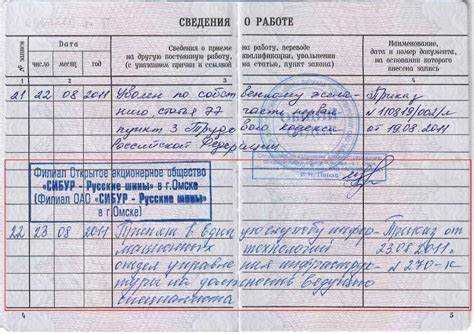 СВЕДЕНИЯ О РАБОТЕ
№ записи
Дата
число
месяц
год
Сведения о приеме на работу, переводе
на другую постоянную работу, квалификации, увольнении
(с указанием причин и ссылкой на статью, пункт закона)
Наименование,
дата и номер документа,
на основании которого
внесена запись
1 2 3 4
21 22 08 2011 Уволен по собственному желанию, статья 77 часть первая
пункт 3 Трудового кодекса
Российской Федерации
Приказ
от 19.08.2011
Филиал Открытое акционерное общество
«СИБУР - Русские шины» в г.Омске
(Филиал ОАО «СИБУР - Русские шины»
в г.Омске)
22 23 08 2011 Принят в службу инфор-
мационных технологий
отдел управления инфраструк-
туры на должность ведущего
специалиста
Приказ от
23.08.2011г.
№ 270-К
4
5